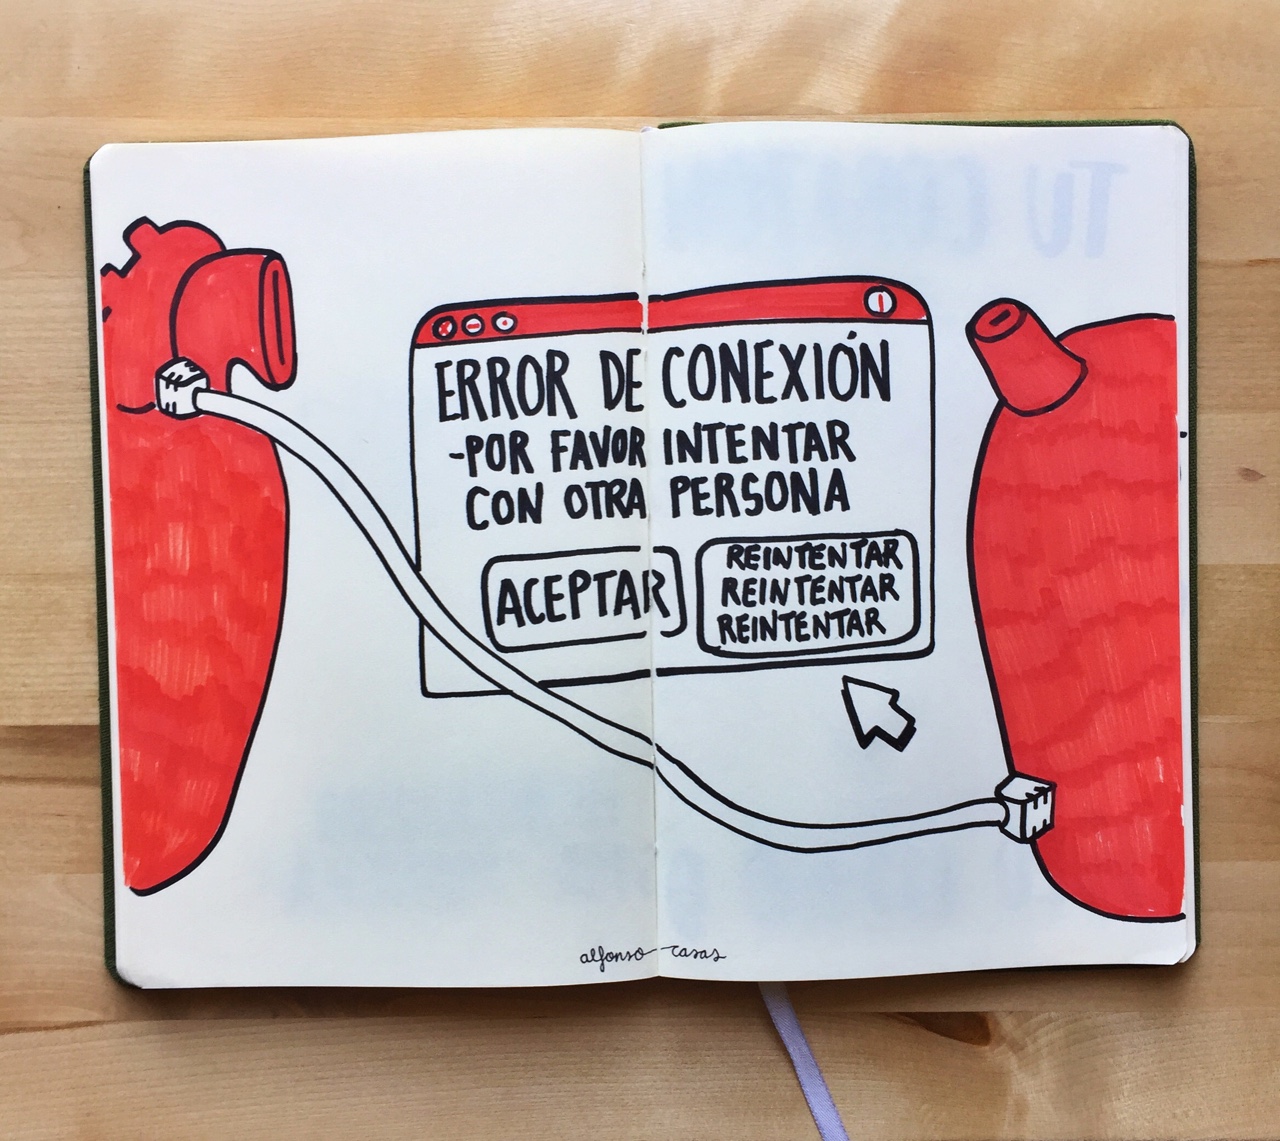 ERROR DE CONEXIÓN
-POR FAVOR INTENTAR
CON OTRA PERSONA
ACEPTAR
REINTENTAR
REINTENTAR
REINTENTAR
alfonso casas